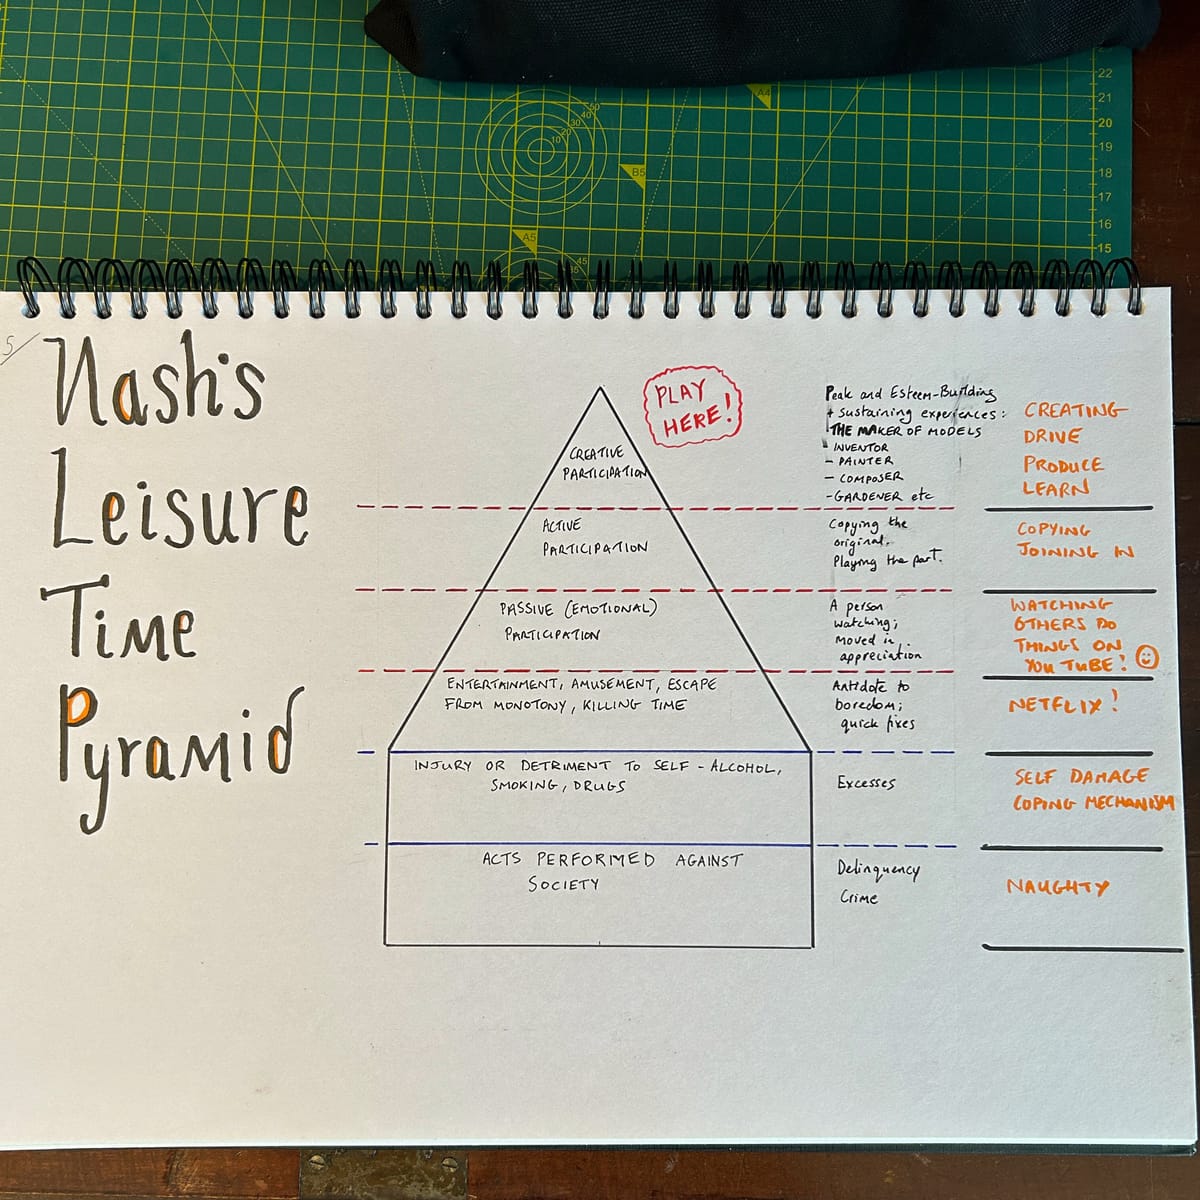 A4
22
21
20
19
18
17
16
15
B5
A5
50
40
30
20
10
45
S
Nash's
Leisure
Time
Pyramid
PLAY
HERE!
CREATIVE
PARTICIPATION
ACTIVE
PARTICIPATION
PASSIVE (EMOTIONAL)
PARTICIPATION
ENTERTAINMENT, AMUSEMENT, ESCAPE
FROM MONOTONY, KILLING TIME
INJURY OR DETRIMENT TO SELF - ALCOHOL,
SMOKING, DRUGS
ACTS PERFORMED AGAINST
SOCIETY
Peak and Esteem-Building
+ sustaining experiences:
THE MAKER OF MODELS
- INVENTOR
- PAINTER
- COMPOSER
- GARDENER etc
Copying the
original.
Playing the part.
A person
watching;
moved in
appreciation
Antidote to
boredom;
quick fixes
Excesses
Delinquency
Crime
CREATING
DRIVE
PRODUCE
LEARN
COPYING
JOINING IN
WATCHING
OTHERS DO
THINGS ON
YOU TUBE!
NETFLIX!
SELF DAMAGE
COPING MECHANISM
NAUGHTY